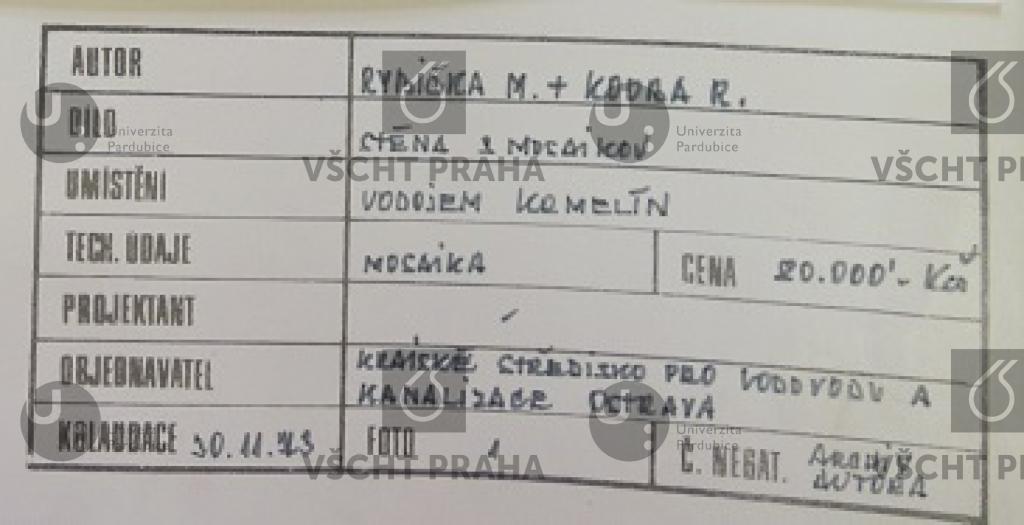 AUTOR RYBIČKA M. + KODRA R.
DÍLO STĚNA S MOSAIKOU
UMÍSTĚNÍ VODOJEM KOMELÍN
TECH. ÚDAJE MOSAIKA CENA 20.000'- Kčs
PROJEKTANT -
OBJEDNAVATEL KRAJSKÉ STŘEDISKO PRO VODOVODY A
KANALISACE OSTRAVA
KOLAUDACE 30.11.73 FOTO 1 Č. NEGAT. ARCHIV
AUTORA
Univerzita
Pardubice
Univerzita
Pardubice
VŠCHT PRAHA
VŠCHT PR
Univerzita
Pardubice
VŠCHT PRAHA
VŠCHT PR